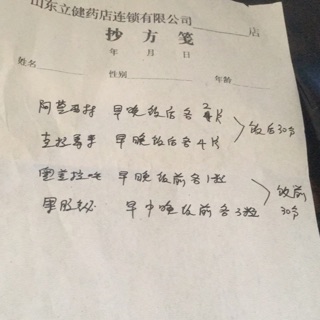 山东立健药店连锁有限公司 店
抄方笺
年 月 日
姓名 性别 年龄
阿莫西林 早晚饭后各 片
饭后30分
克拉霉素 早晚饭后各4片
拉唑 早晚饭前各1粒
饭前
果胶铋 早中晚饭前各3粒
30分